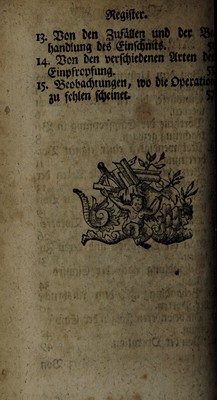 Register.
13. Von den Zufällen und der
handlung des Einschnits.
14. Von den verschiedenen Arten
Einpfropfung.
15. Beobachtungen, wo die
zu fehlen scheinet.